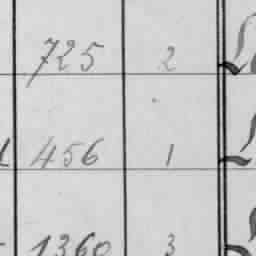 725 2
456 1
1360 3